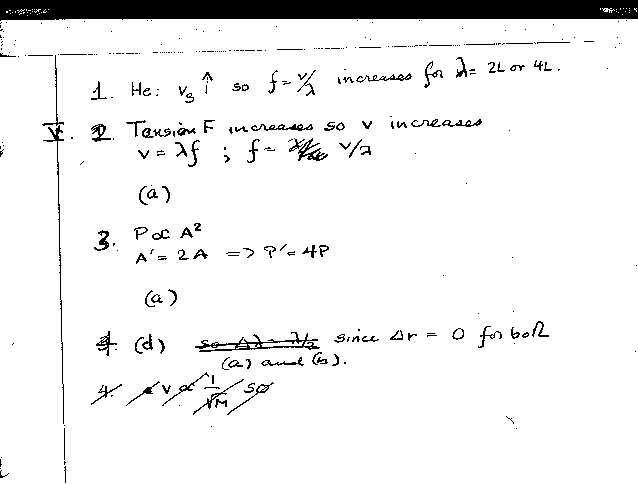 1. He: v_s ↑ so f = v/λ increases for λ = 2L or 4L.
V. 2. Tension F increases so v increases
v = λf ; f = v/λ
(a)
3. P ∝ A²
A' = 2A => P' = 4P
(a)
4. (d) so Δλ = λ/2 since Δr = 0 for both
(a) and (b).
4. v ∝ 1/√M so